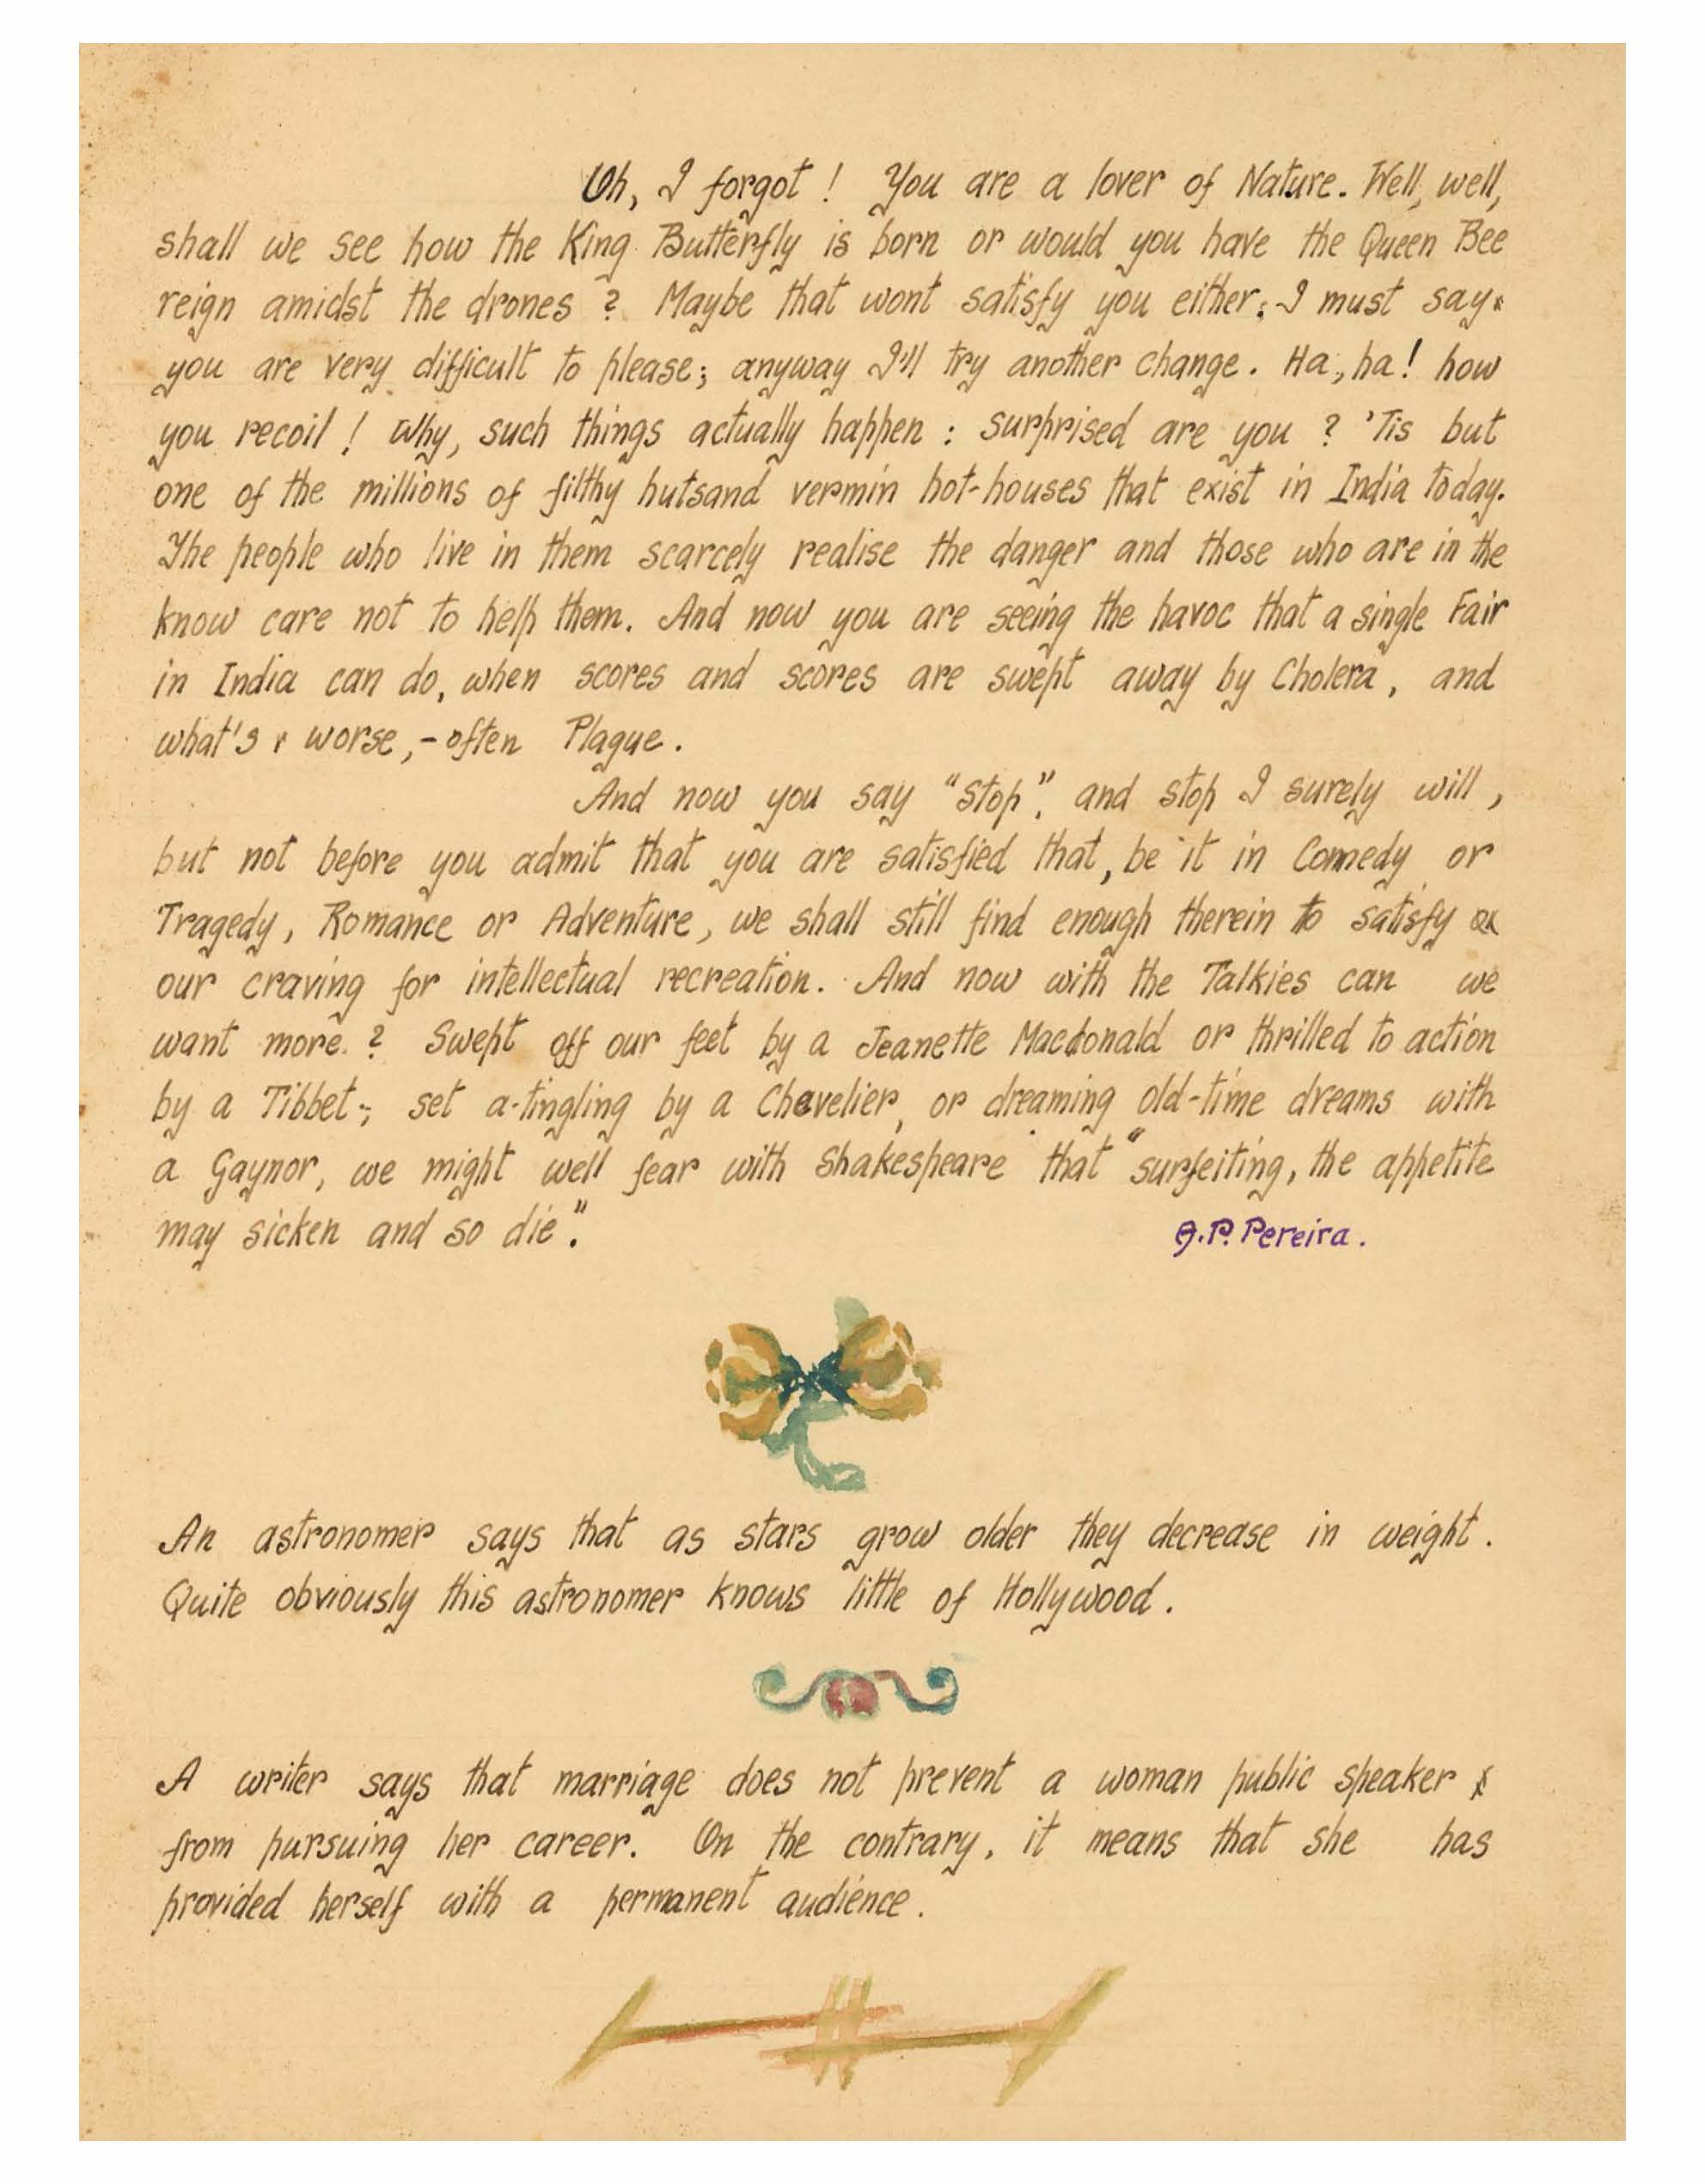 Oh, I forgot! You are a lover of Nature. Well, well,
shall we see how the King Butterfly is born or would you have the Queen Bee
reign amidst the drones? Maybe that wont satisfy you either; I must say
you are very difficult to please; anyway I'll try another change. Ha, ha! how
you recoil! Why, such things actually happen: surprised are you? 'Tis but
one of the millions of filthy hutsand vermin hot-houses that exist in India today.
The people who live in them scarcely realise the danger and those who are in the
know care not to help them. And now you are seeing the havoc that a single Fair
in India can do, when scores and scores are swept away by Cholera, and
what's r worse,-often Plague.
And now you say "Stop", and stop I surely will,
but not before you admit that you are satisfied that, be it in Comedy or
Tragedy, Romance or Adventure, we shall still find enough therein to satisfy
our craving for intellectual recreation. And now with the Talkies can we
want more? Swept off our feet by a Jeanette Macdonald or thrilled to action
by a Tibbet; set a-tingling by a Chevelier, or dreaming old-time dreams with
a Gaynor, we might well fear with Shakespeare that "surfeiting, the appetite
may sicken and so die".
J.P. Pereira.
An astronomer says that as stars grow older they decrease in weight.
Quite obviously this astronomer knows little of Hollywood.
A writer says that marriage does not prevent a woman public speaker
from pursuing her career. On the contrary, it means that she has
provided herself with a permanent audience.